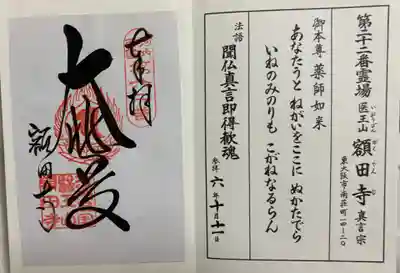 第二十二番霊場 医王山 額田寺 真言宗
東大阪市南荘町一四ー二〇
御本尊 薬師如来
あなたうと ねがいをここに ぬかたでら
いねのみのりも こがねなるらん
法語 聞仏真言即得歓魂
参拝 六年十月十一日
奉拝
額田寺